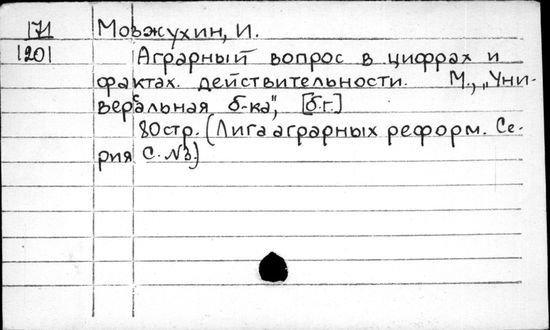 171 Мовжухин, И.
1201 Аграрный вопрос в цифрах и
фактах действительности. М., „Уни-
веральная б-ка", [б.г.]
80стр. (Лига аграрных реформ. Се-
рия С. №3)